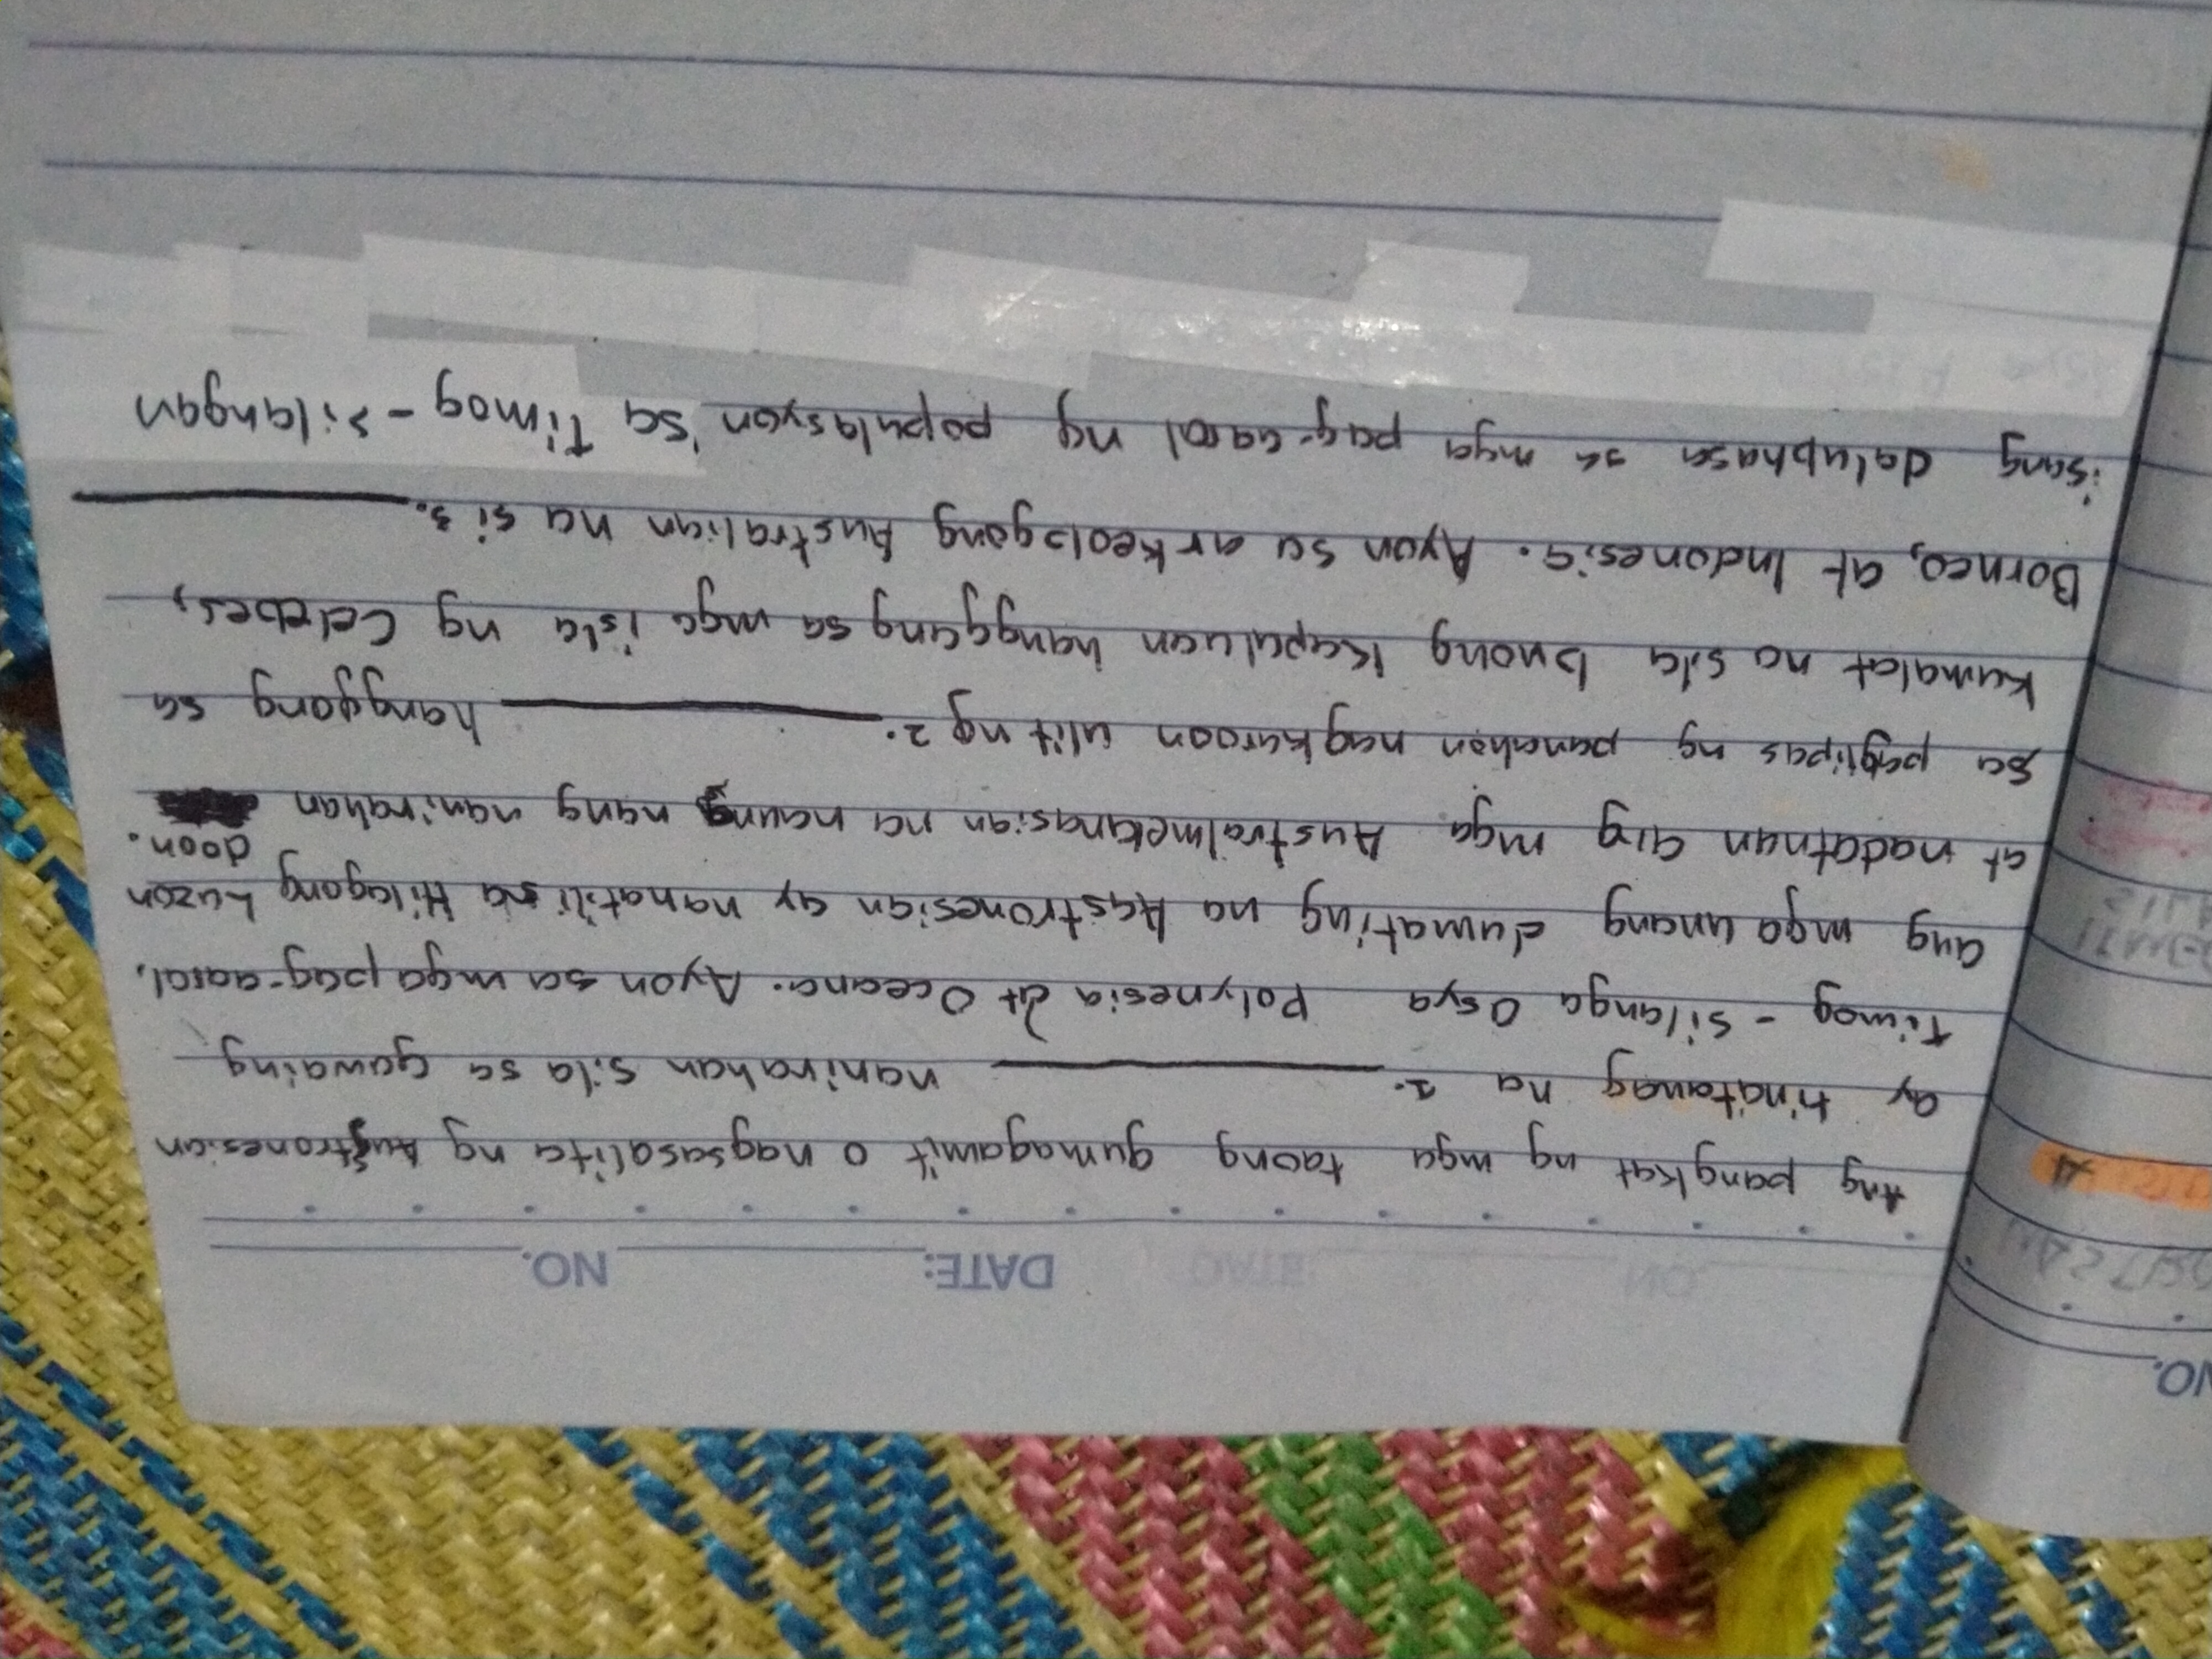 DATE: NO.
Ang pangkat ng mga taong gumagamit o nagsasalita ng Austronesian
ay tinatawag na 1. ______ nanirahan sila sa gawaing
Timog - Silanga Osya Polynesia at Oceana. Ayon sa mga pag-aaral,
ang mga unang dumating na Austronesian ay nanatili sa Hilagang Luzon
at nadatnan ang mga Australmelanasian na naung nang nanirahan doon.
Sa paglipas ng panahon nagkaroon ulit ng 2. ______ hanggang sa
kumalat na sila buong kapuluan hanggang sa mga isla ng Celebes,
Borneo, at Indonesia. Ayon sa arkeologong Australian na si 3. ______
isang dalubhasa sa mga pag-aaral ng populasyon sa Timog - Silangan
NO.